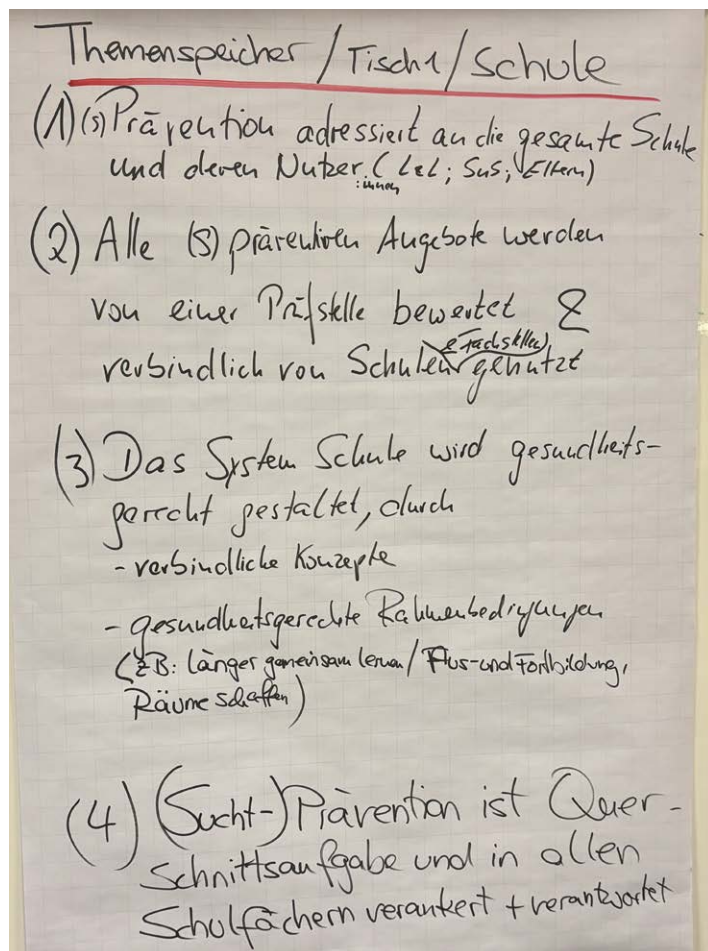 Themenspeicher / Tisch 1 / Schule
(1) (s) Prävention adressiert an die gesamte Schule
und deren Nutzer:innen (LuL; SuS; Eltern)
(2) Alle (S) präventiven Angebote werden
von einer Prüfstelle bewertet &
verbindlich von Schulen genutzt
(3) Das System Schule wird gesundheits-
gerecht gestaltet, durch
- verbindliche Konzepte
- gesundheitsgerechte Rahmenbedingungen
(zB: länger gemeinsam lernen / Aus- und Fortbildung,
Räume schaffen)
(4) (Sucht-) Prävention ist Quer-
schnittsaufgabe und in allen
Schulfächern verankert + verantwortet